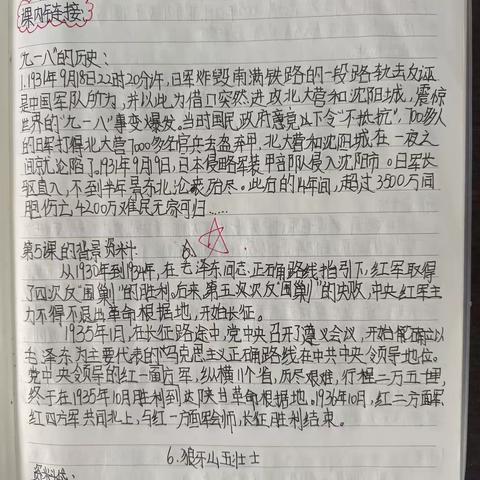 课内链接:
九一八"的历史:
1.1931年9月18日22时20分许,日军炸毁南满铁路的一段路轨去反诬
是中国军队所为,并以此为借口突然进攻北大营和沈阳城,震惊
世界的"九一八"事变爆发。当时国民政府竟以下令"不抵抗",700多人
的日军打得北大营7000多名官兵丢盔弃甲,北大营和沈阳城在一夜之
间就沦陷了。1931年9月9日,日本侵略军装甲部队侵入沈阳市。日军长
驱直入,不到半年,东北沦丧殆尽。此后的14年间,超过3500万同
胞伤亡,4200万难民无家可归……
第5课的背景资料:
从1930年到1934年,在毛泽东同志正确路线指引下,红军取得
了四次反"围剿"的胜利。后来,第五次反"围剿"的失败,中央红军主
力不得不退出革命根据地,开始长征。
1935年1月,在长征路途中,党中央召开了遵义会议,开始确立以
毛泽东为主要代表的马克思主义正确路线在中共中央领导地位。
党中央领导的红一面方军,纵横11个省,历尽艰难,行程二万五千里,
终于在1935年10月胜利到达陕甘革命根据地。1936年10月,红二方面军、
红四方军共同北上,与红一方面军会师,长征胜利结束。
6.狼牙山五壮士
资料: